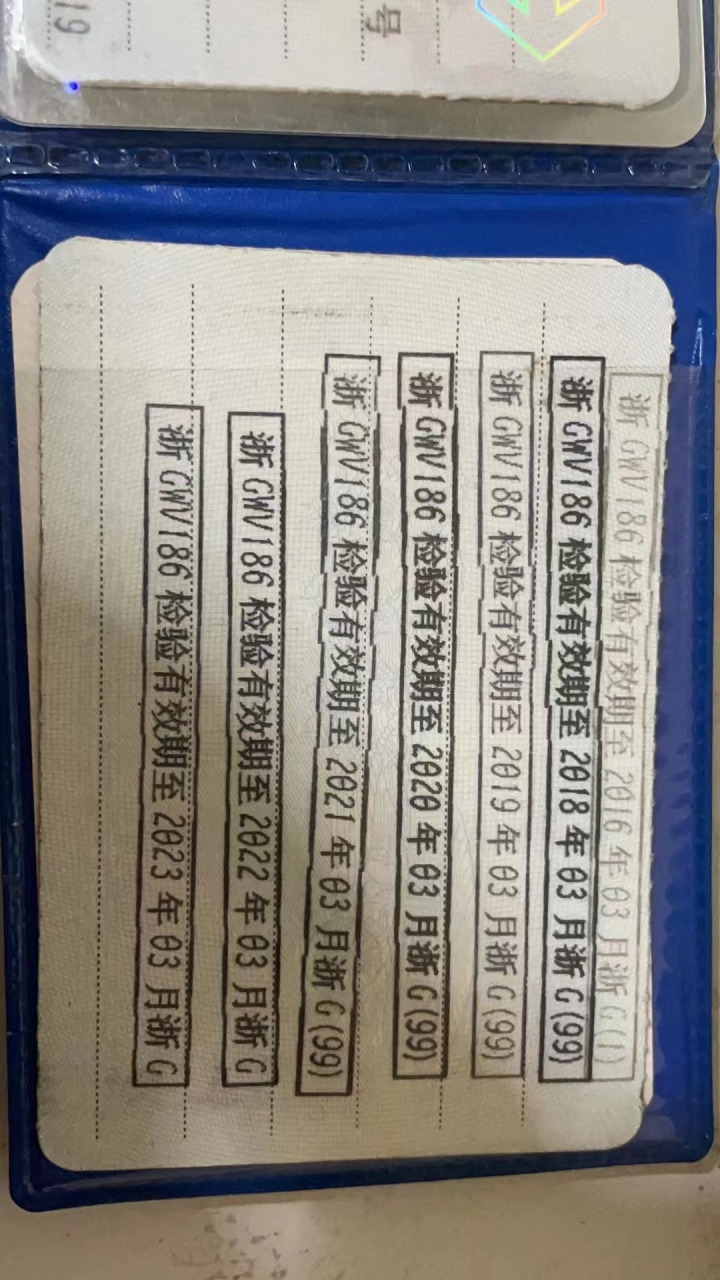 号
19
浙 GWV186 检验有效期至 2016 年 03 月浙 G(1)
浙 GWV186 检验有效期至 2018 年 03 月浙 G(99)
浙 GWV186 检验有效期至 2019 年 03 月浙 G(99)
浙 GWV186 检验有效期至 2020 年 03 月浙 G(99)
浙 GWV186 检验有效期至 2021 年 03 月浙 G(99)
浙 GWV186 检验有效期至 2022 年 03 月浙 G
浙 GWV186 检验有效期至 2023 年 03 月浙 G